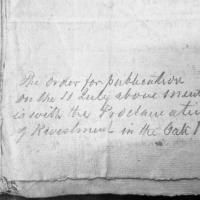 The order for publication
on the 11 July above ment
is with the Proclamati
of Revestment in the Oak